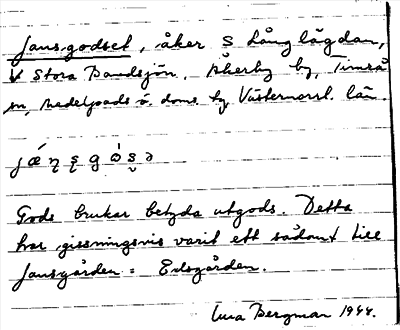 Jansgodset, åker S Långlägdan,
V Stora Bandsjön, Åkerby by, Timrå
sn, Medelpads ö. doms. by. Västernorrl. län.
Gods brukar betyda utgods. Detta
har gissningsvis varit ett sådant till
Jansgården = Erlsgården.
Bergman 1944.